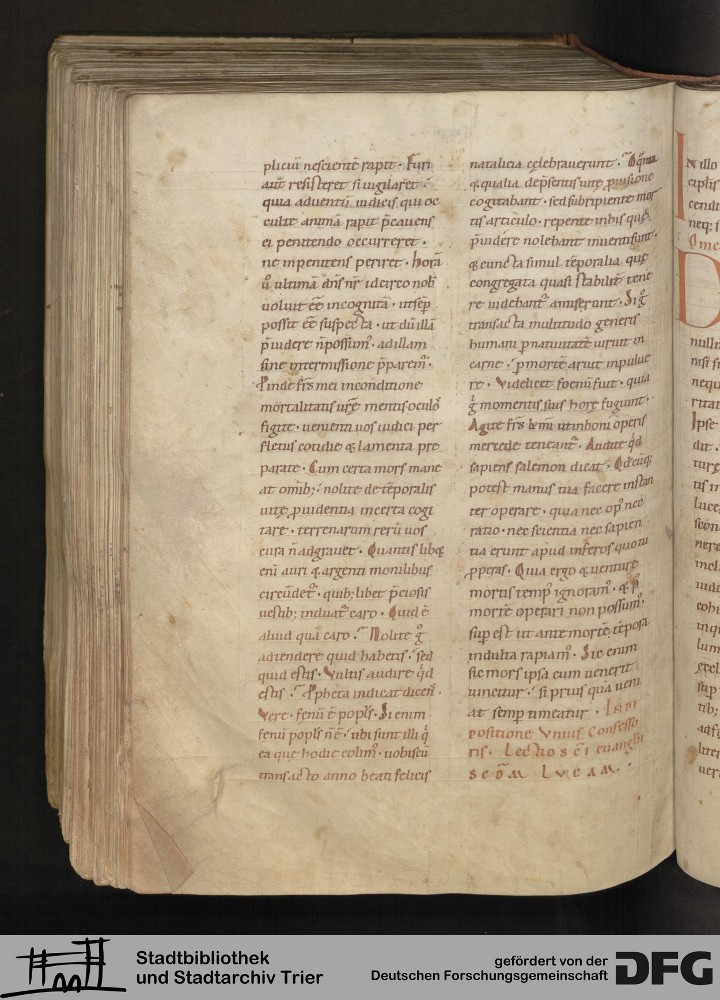 plicium nescientē rapit. Furi
aūt resisteret si vigilaret.
quia adventū iudicis qui oc
culte animā rapit p̄cavens
ei penitendo occurreret.
ne inpenitens periret. horā
ultimā dn̄s nr̄ idcirco nob̄
voluit eē incognitā. ut sēp
possit eē suspecta. ut dū illā
p̄videre n̄ possum̉. ad illam
sine intermissione p̄parem̉.
Pinde frs̄ mei in conditione
mortalitatis vr̄ę mentis oculo᷒
figite. venienti vos iudici per
fletus cotidie & lamenta pre
parate. Cum certa mors mane
at omīb; nolite de tēporalis
vitę ꝓvidentia incerta cogi
tare. terrenarum rerū vos
cura n̄ adgravet. Quantis libę
enī auri & argenti monilibus
circūdet᷒. quib; libet p̄ciosis
vestib; induat᷒ caro. Quid ē
aliud quā caro. Nolite g̊
adtendere quid habetis. sed
quid estis. Vultis audire q̊d
estis. Ꝓpheta indicat dicen᷒.
Vere. fenū ē popl̄s. Si enim
fenū popl̄s n̄ ē. ubi sunt illi q̇
ea que hodie colim᷒. nobiscū
transacto anno beati felicis
natalicia cęlebraverunt.
& qualia de p̄sentis vitę ꝓvisione
cogitabant. sed subripiente mor
tis articulo. repente in his quę
p̄videre nolebant inventi sunt.
& cuncta simul tēporalia quę
congregata quasi stabilit̄ tene
re videbant᷒ amiserunt. Si g̊
transacta multitudo generis
humani p nativitatē viruit in
carne. p mortē aruit in pulve
re. Videlicet foenū fuit. quia
g̊ momentis suis horę fugiunt.
Agite frs̄ kmī ut in boni operis
mercede teneant᷒. Audite q̊d
sapiens salemon dicat. Qd̄cūq;
potest manus tua facere instan
ter operare. quia nec op᷒ nec
ratio. nec scientia nec sapien
tia erunt apud inferos quo tu
ꝓperas. Quia ergo & venturę
mortis temp᷒ ignoram᷒. & p᷒
mortē operari non possum᷒.
sup est ut ante mortē tēpora
indulta rapiam᷒. Sic enim
sic mors ipsa cum venerit
vincetur. si prius quā veni
at semp timeatur. In de
positione Unius Confesso
ris. Lectio s c̄i evangłii
s c̄d̄m Lucam.
N illo
Stadtbibliothek
und Stadtarchiv Trier
gefördert von der
Deutschen Forschungsgemeinschaft
DFG